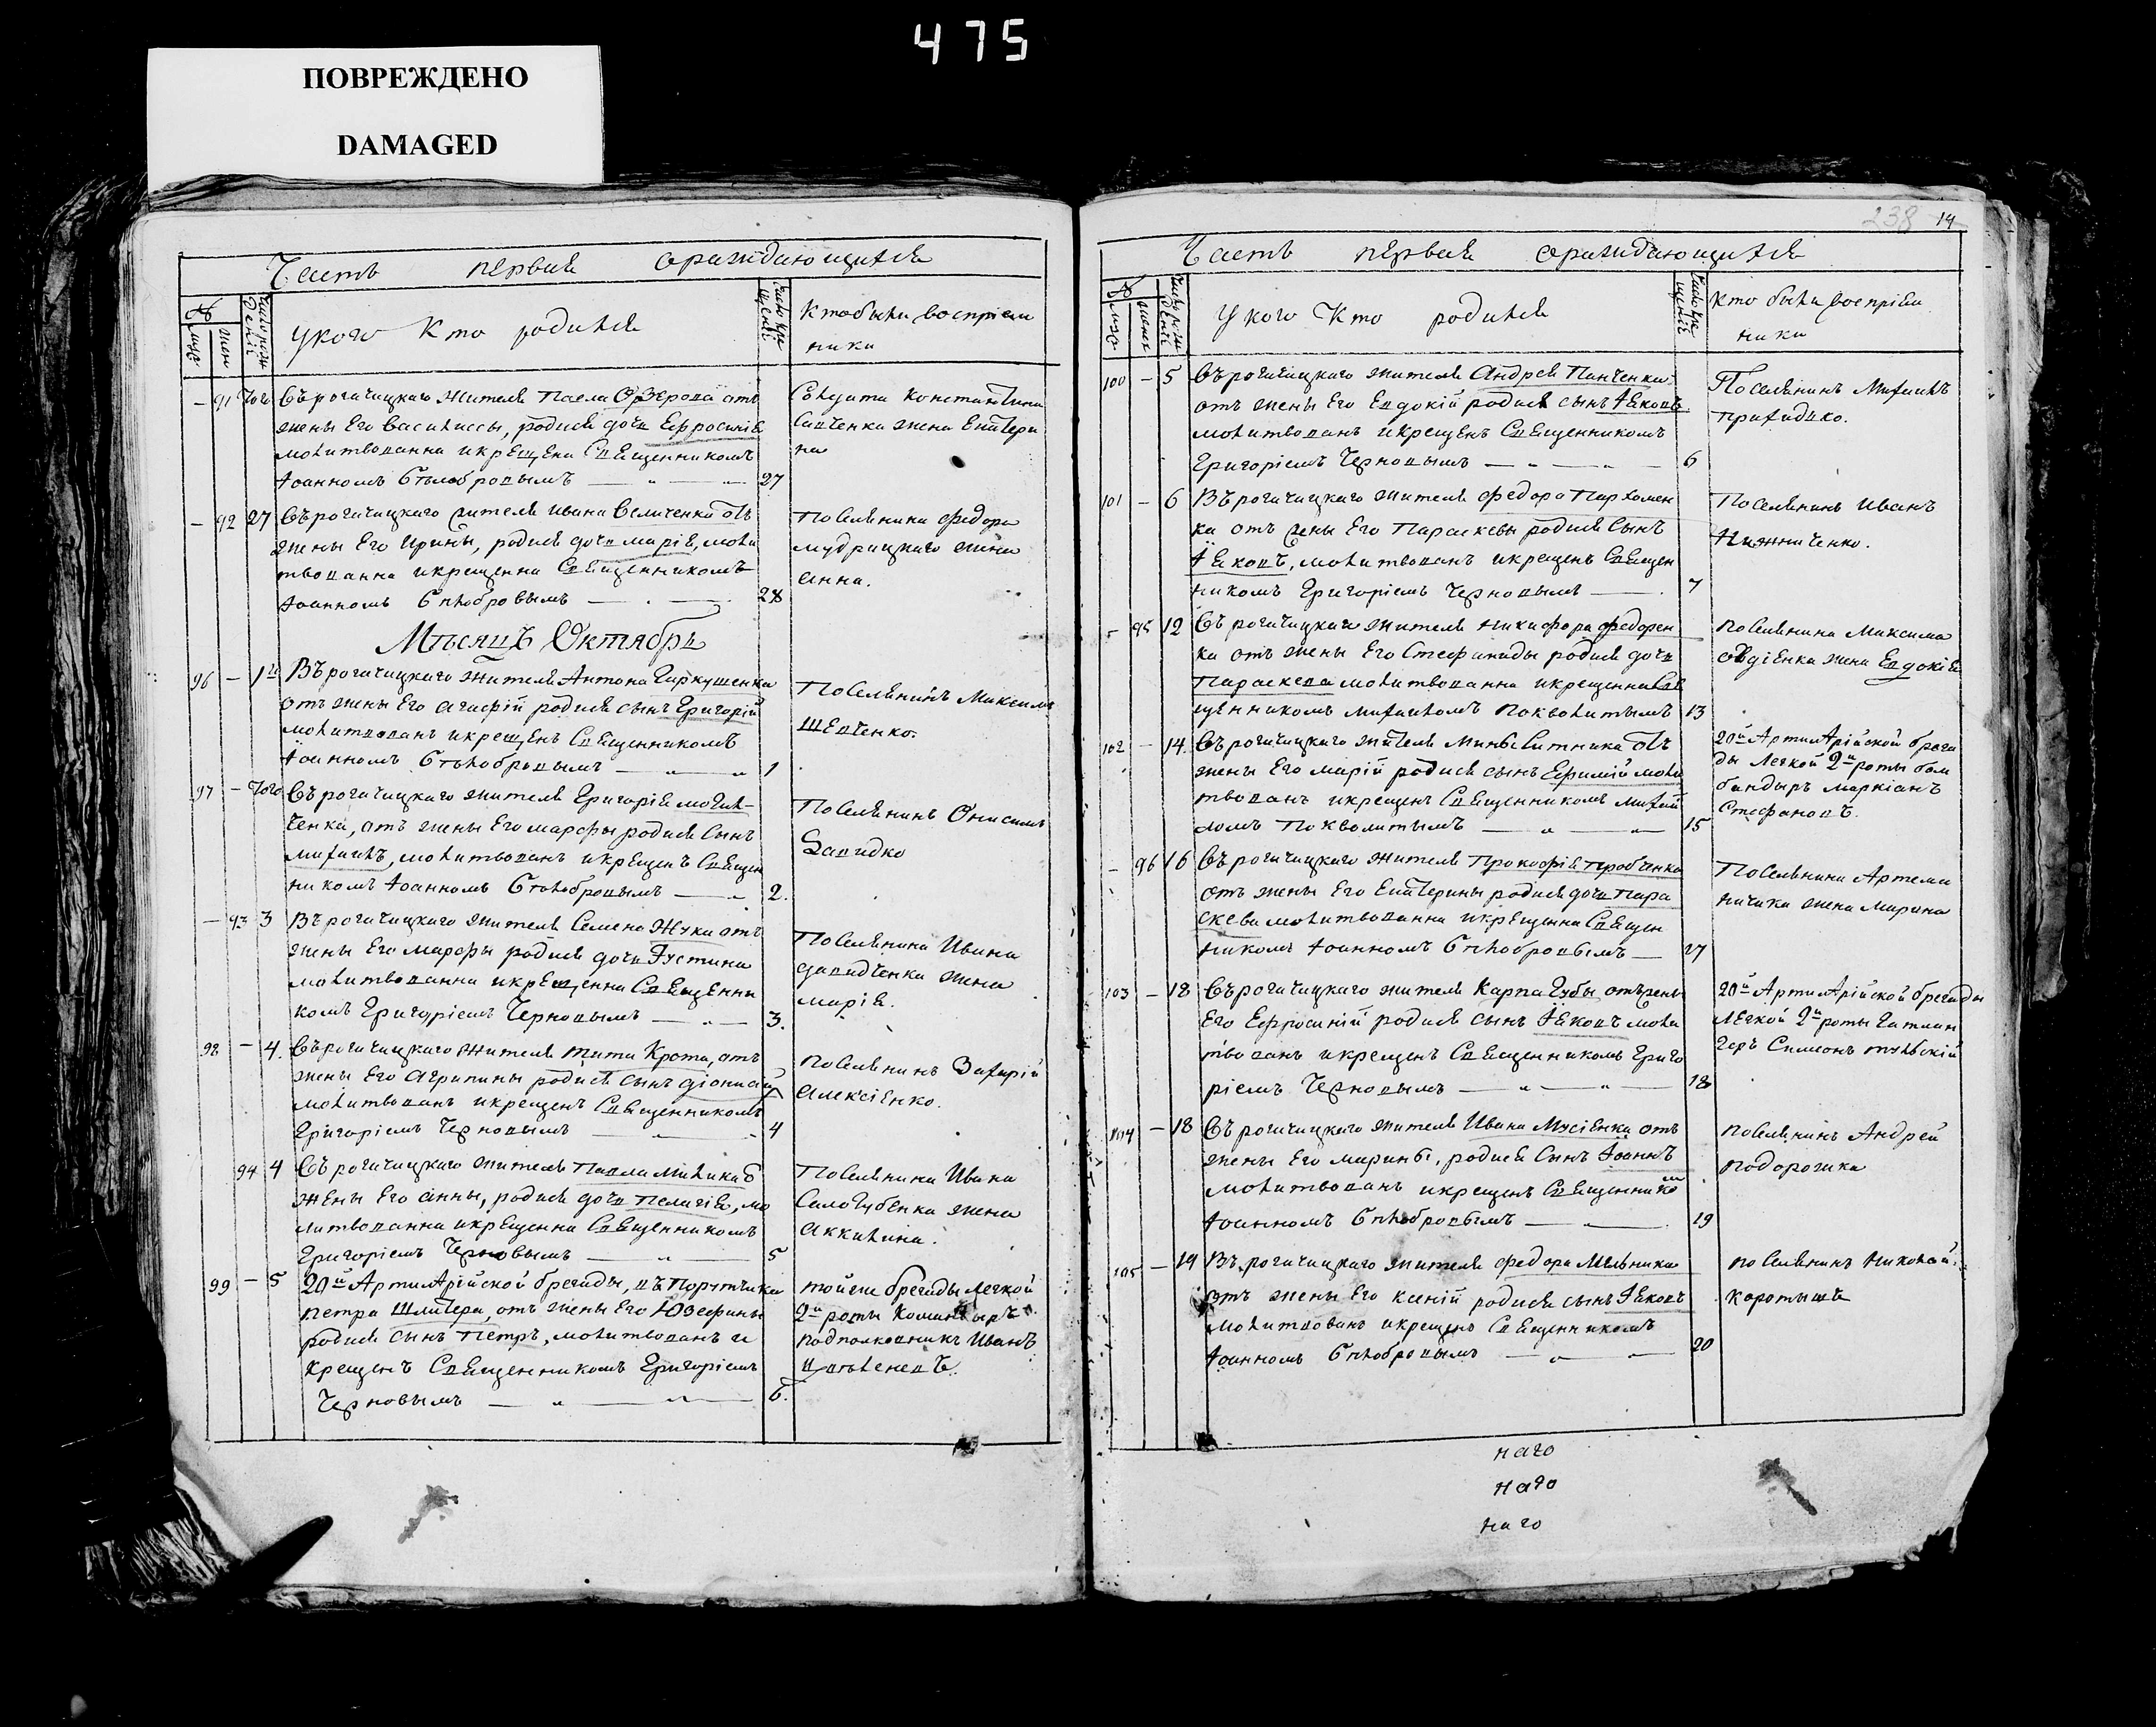 475
ПОВРЕЖДЕНО
DAMAGED
Часть первая ораждающихся
№
муж
жен
Число рожденій
У кого Кто родился
Число крещеній
Кто были воспріем
ники
91 Того Въ рогачицкаго жителя Павла отъ
жены Его Василиссы, родися дочь Ефросиніа
молитвованна и крещена Священникомъ
Іоанномъ Бѣлобровымъ 27
Константина
Савченка жена Екатери
на
92 27 Въ рогачицкаго жителя Ивана Величенка отъ
жены Его Ирины, родися дочь Маріа, моли
твованна и крещенна Священникомъ
Іоанномъ Бѣлобровымъ 28
Поселянина Федора
Мудрицкаго жена
Анна.
Мѣсяцъ Октябрь
96 – 1й Въ рогачицкаго жителя Антона Гаркушенка
отъ жены Его Агафій родися сынъ Григорій
молитвованъ и крещенъ Священникомъ
Іоанномъ Бѣлобровымъ 1
Поселянинъ Максимъ
Шевченко.
97 – Того Въ рогачицкаго жителя Григоріа
ченка, отъ жены Его Марфы родися сынъ
Михаилъ, молитвованъ и крещенъ Священ
никомъ Іоанномъ Бѣлобровымъ 2.
Поселянинъ Онисимъ
Давидко
– 93 3 Въ рогачицкаго жителя Семена Жука отъ
жены Его Марфы родися дочь Іустина
молитвованна и крещенна Священни
комъ Григоріемъ Черновымъ 3.
Поселянина Ивана
Давидченка жена
Маріа.
98 – 4. Въ рогачицкаго жителя Тита Крота, отъ
жены Его Агрипины родися сынъ Діонисій
молитвованъ и крещенъ Священникомъ
Григоріемъ Черновымъ 4
Поселянинъ Захарій
Алексіенко.
94 4 Въ рогачицкаго жителя Павла Малика отъ
жены Его Анны, родися дочь Пелагіа, мо
литвованна и крещенна Священникомъ
Григоріемъ Черновымъ 5
Поселянина Ивана
Самогубенка жена
Аккилина.
99 – 5 20й Артиларійской брегады, въ Порутчика
Петра Шлитера, отъ жены Его Юзефины
родися сынъ Петръ, молитвованъ и
крещенъ Священникомъ Григоріемъ
Черновымъ 6.
тойже брегады легкой
2й роты Командыръ
подполковникъ Иванъ
238 14
Часть первая ораждающихся
№
муж
женск
Число рожденій
У кого Кто родился
Число крещеній
Кто были воспріем
ники
100 – 5 Въ рогачицкаго жителя Андрея Панченка
отъ жены Его Евдокій родися сынъ Іаковъ
молитвованъ и крещенъ Священникомъ
Григоріемъ Черновымъ 6
Поселянинъ Михаилъ
Прихидко.
101 – 6 Въ рогачицкаго жителя Федора Пархомен
ка отъ жены Его Параскевы родися сынъ
Іаковъ, молитвованъ и крещенъ Священ
никомъ Григоріемъ Черновымъ 7
Поселянинъ Иванъ
– 95 12 Въ рогачицкаго жителя Никифора Федорен
ка отъ жены Его Стефаниды родися дочь
Параскева молитвованна и крещенна Свя
щенникомъ Михаиломъ Похвалитымъ 13
Поселянина Максима
Овдіенка жена Евдокіа
102 – 14. Въ рогачицкаго жителя Мины Ситника отъ
жены Его Марій родися сынъ Ефимій моли
твованъ и крещенъ Священникомъ Михаи
ломъ Похвалитымъ 15
20й Артиларійской брега
ды легкой 2й роты бом
бандыръ Маркіанъ
Стефановъ.
– 96 16 Въ рогачицкаго жителя Прокофіа
отъ жены Его Екатерины родися дочь Пара
скева молитвованна и крещенна Священ
никомъ Іоанномъ Бѣлобровымъ 27
Поселянина Артема
жена Марина
103 – 18 Въ рогачицкаго жителя Карпа Губы отъ жены
Его Ефросиній родися сынъ Іаковъ моли
твованъ и крещенъ Священникомъ Григо
ріемъ Черновымъ 18
20й Артиларійской брегады
легкой 2й роты
Симеонъ
104 – 18 Въ рогачицкаго жителя Ивана Мусіенка отъ
жены Его Марины, родися сынъ Іоаннъ
молитвованъ и крещенъ Священникомъ
Іоанномъ Бѣлобровымъ 19
Поселянинъ Андрей
Подорожка
105 – 19 Въ рогачицкаго жителя Федора Мельника
отъ жены Его Ксеній родися сынъ Іаковъ
молитвованъ и крещенъ Священникомъ
Іоанномъ Бѣлобровымъ 20
Поселянинъ Николай
наго
наго
наго